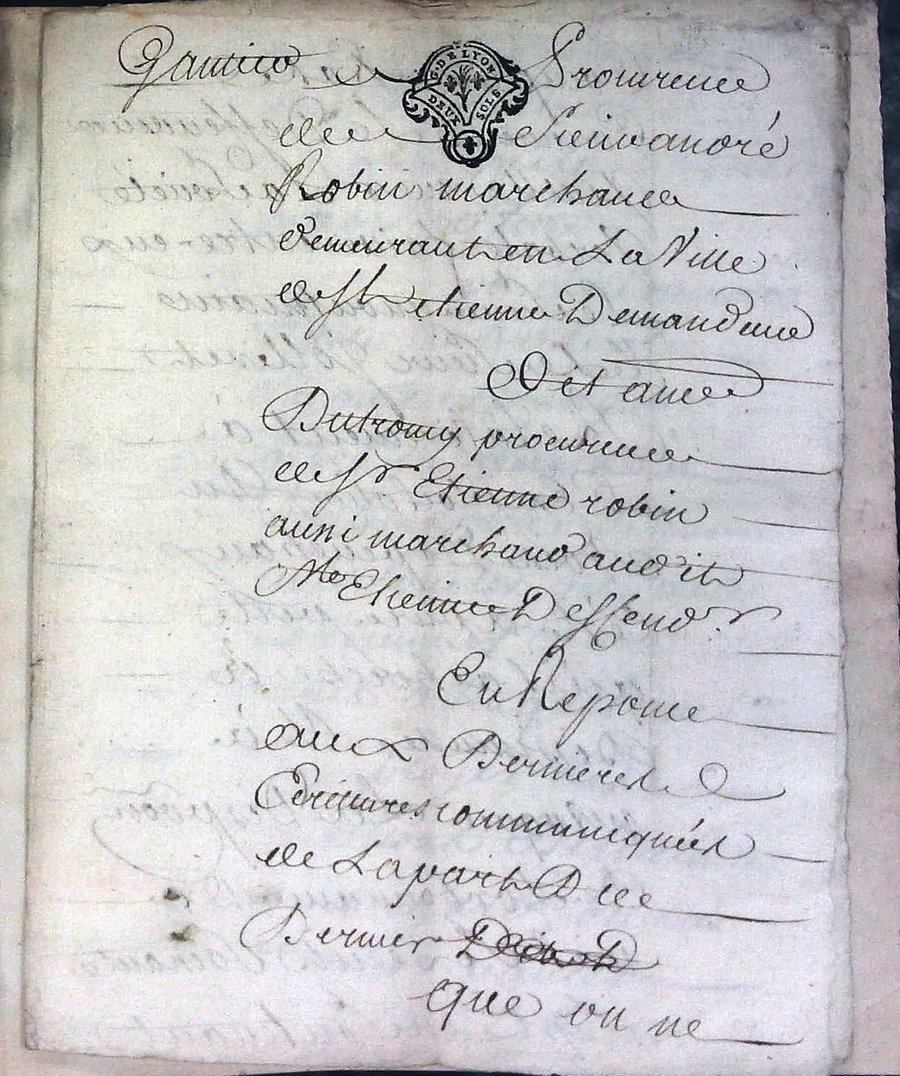 G. DE LYON
DEUX SOLS
Procureur
de Sieur andré
Robin marchand
demeurant en La Ville
de St etienne Demandeur
Dit a me
Dutromy procureur
de Sr Etienne robin
aussi marchand audit
St Etienne Deffend.r
En Reponse
aux Dernieres
Ecritures communiquées
de La part De ce
Dernier
que on ne